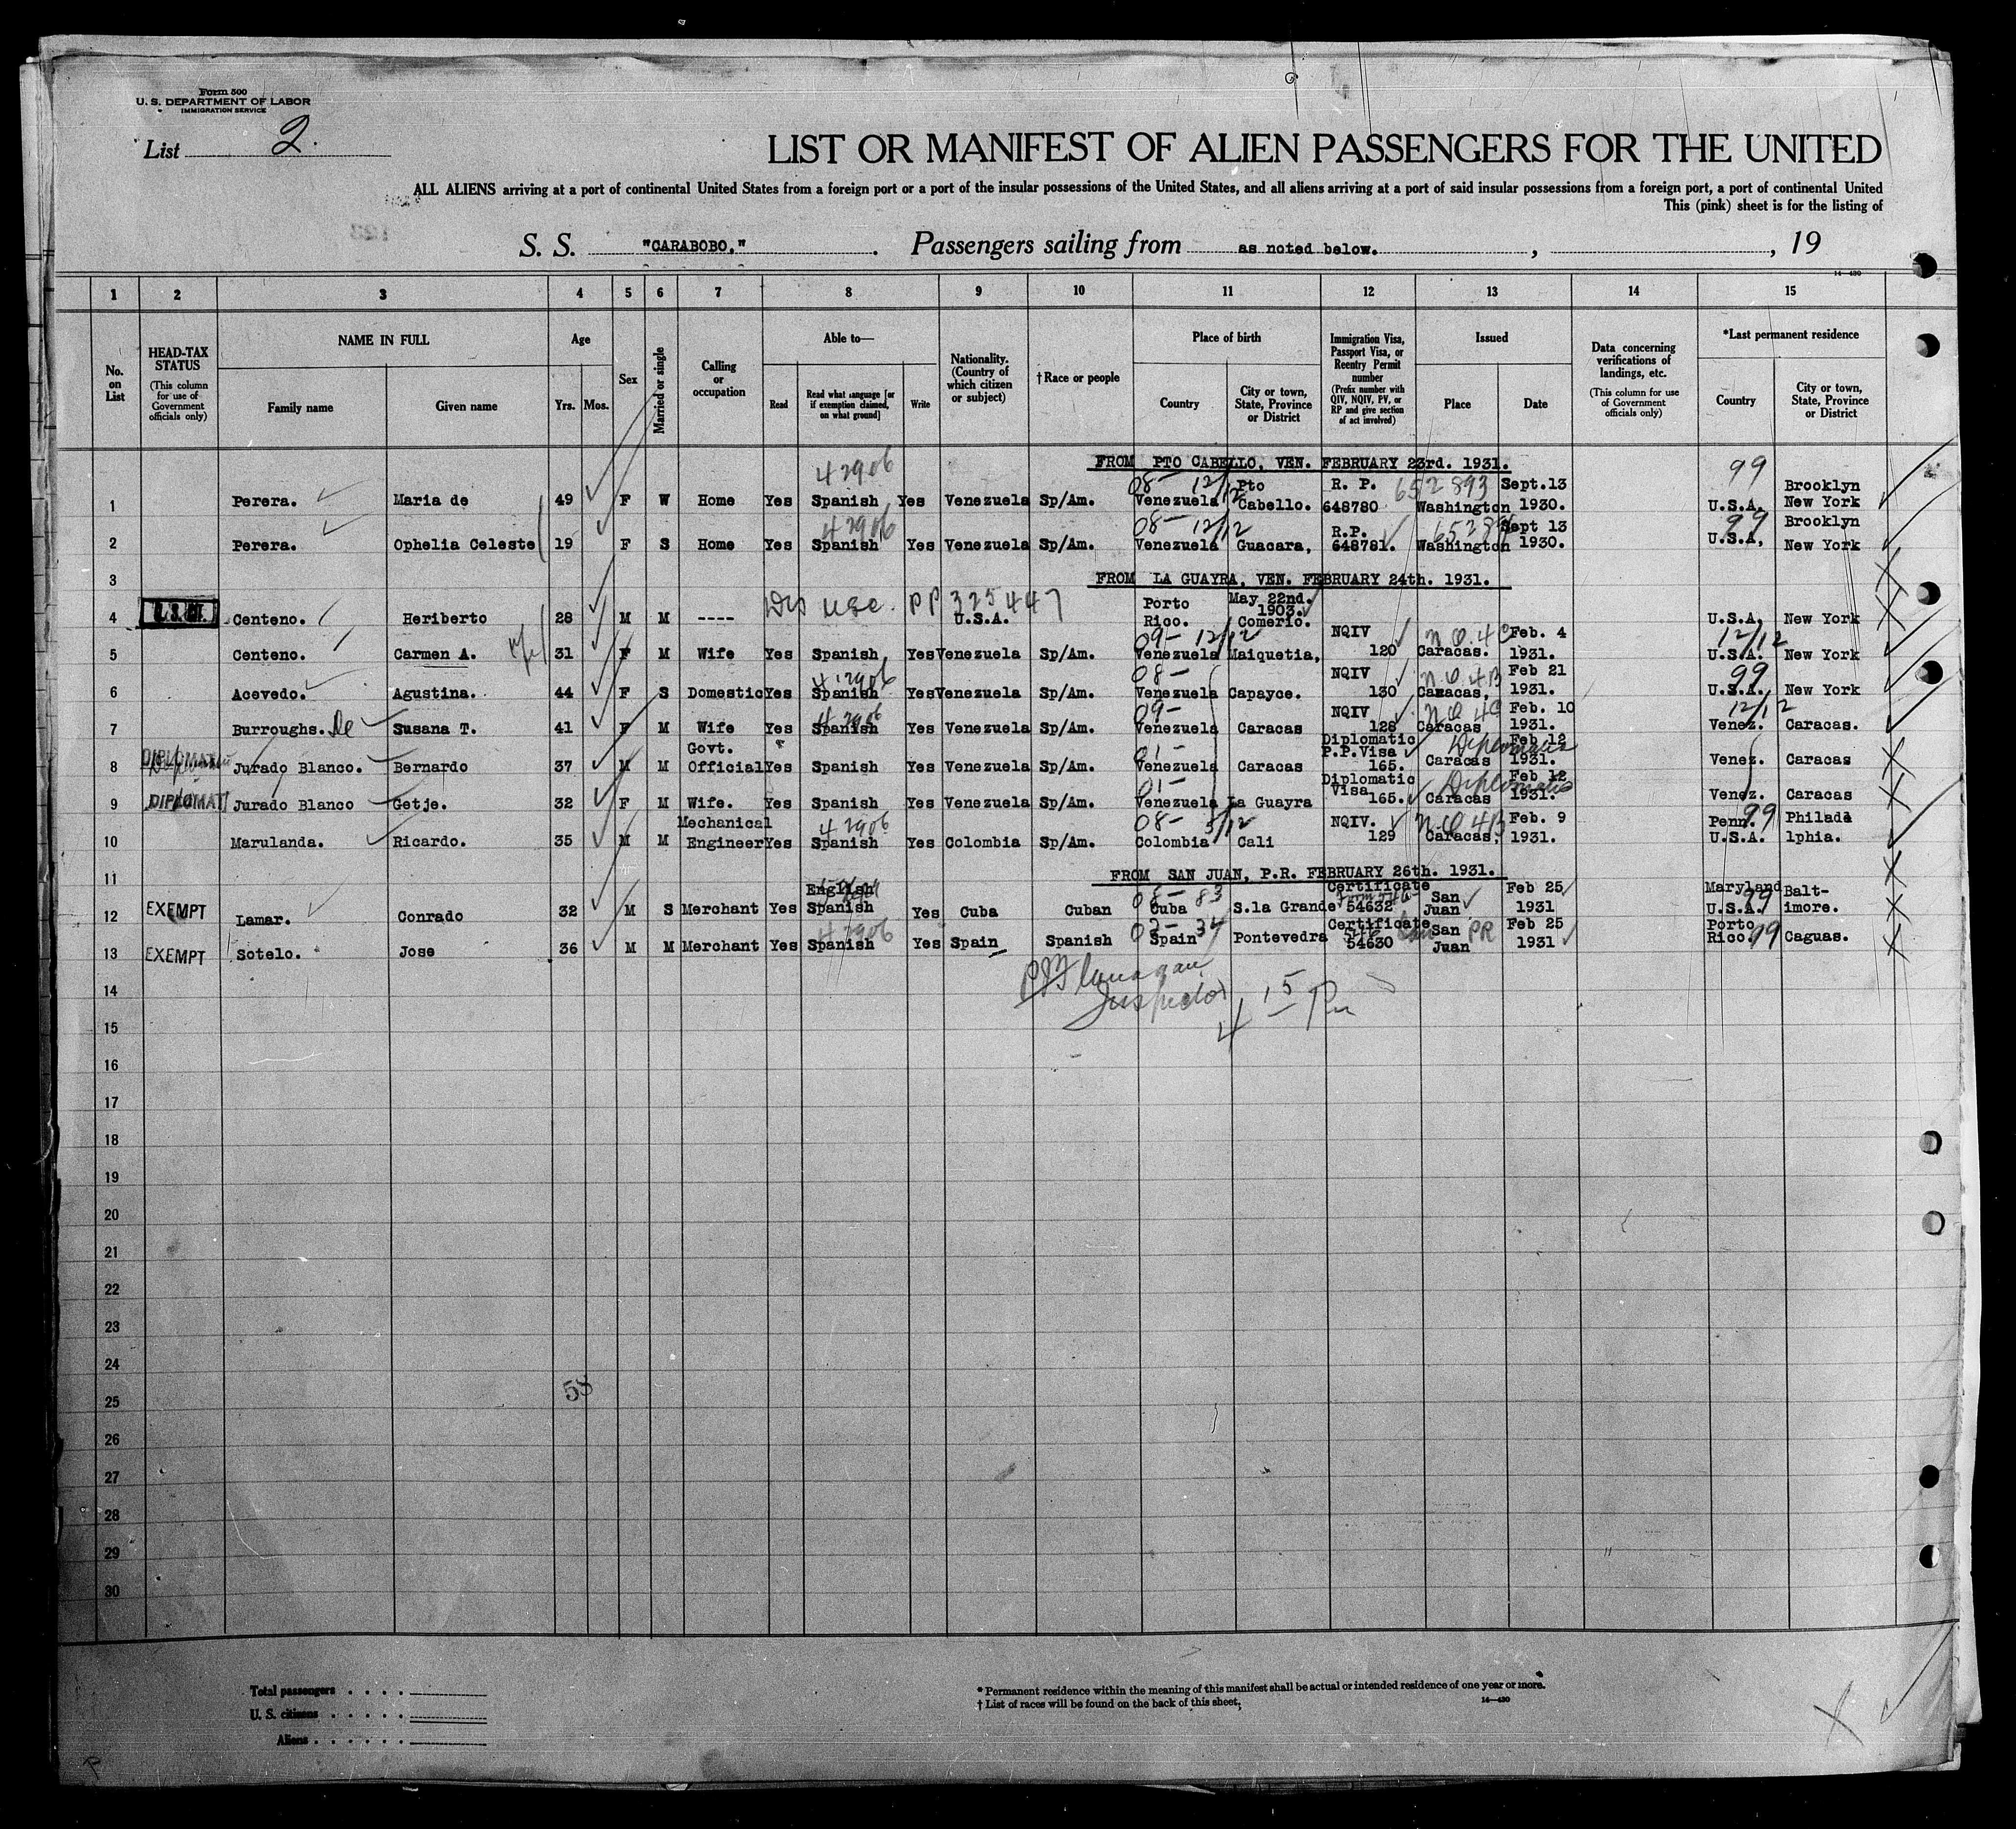 Form 500
U. S. DEPARTMENT OF LABOR
IMMIGRATION SERVICE
List 2.
LIST OR MANIFEST OF ALIEN PASSENGERS FOR THE UNITED
ALL ALIENS arriving at a port of continental United States from a foreign port or a port of the insular possessions of the United States, and all aliens arriving at a port of said insular possessions from a foreign port, a port of continental United
This (pink) sheet is for the listing of
S. S. "CARABOBO." Passengers sailing from as noted below. , , 19
14—430
1 2 3 4 5 6 7 8 9 10 11 12 13 14 15
No. on List
HEAD-TAX STATUS (This column for use of Government officials only)
NAME IN FULL Family name Given name
Age Yrs. Mos.
Sex
Married or single
Calling or occupation
Able to— Read Read what language [or if exemption claimed, on what ground] Write
Nationality. (Country of which citizen or subject)
† Race or people
Place of birth Country City or town, State, Province or District
Immigration Visa, Passport Visa, or Reentry Permit number (Prefix number with QIV, NQIV, PV, or RP and give section of act involved)
Issued Place Date
Data concerning verifications of landings, etc. (This column for use of Government officials only)
*Last permanent residence Country City or town, State, Province or District
FROM PTO CABELLO, VEN. FEBRUARY 23rd. 1931.
1 Perera. Maria de 49 F W Home Yes Spanish 42906 Yes Venezuela Sp/Am. 08- 12/12 Venezuela Pto Cabello. R. P. 648780 652893 Washington Sept.13 1930. 99 U.S.A. Brooklyn New York
2 Perera. Ophelia Celeste 19 F S Home Yes Spanish 42906 Yes Venezuela Sp/Am. 08- 12/12 Venezuela Guacara, R.P. 648781. Washington Sept 13 1930. 99 U.S.A, Brooklyn New York
3 FROM LA GUAYRA, VEN. FEBRUARY 24th. 1931.
4 U.S. Centeno. Heriberto 28 M M ---- PP 325447 U.S.A. Porto Rico. May 22nd. 1903. Comerio. U.S.A, New York
5 Centeno. Carmen A. 31 F M Wife Yes Spanish Yes Venezuela Sp/Am. 09- 12/12 Venezuela Maiquetia, NQIV 120 Caracas. Feb. 4 1931. 12/12 U.S.A. New York
6 Acevedo. Agustina. 44 F S Domestic Yes Spanish 42906 Yes Venezuela Sp/Am. 08- Venezuela Capayce. NQIV 130 Caracas, Feb 21 1931. 99 U.S.A. New York
7 Burroughs. de Susana T. 41 F M Wife Yes Spanish 42906 Yes Venezuela Sp/Am. 09- Venezuela Caracas NQIV 128 Caracas Feb. 10 1931. 12/12 Venez. Caracas.
8 DIPLOMAT Jurado Blanco. Bernardo 37 M M Govt. Official Yes Spanish Yes Venezuela Sp/Am. 01- Venezuela Caracas Diplomatic P.P.Visa 165. Diplomatic Caracas Feb 12 1931. Venez. Caracas
9 DIPLOMAT Jurado Blanco Getje. 32 F M Wife. Yes Spanish Yes Venezuela Sp/Am. 01- Venezuela La Guayra Diplomatic Visa 165. Diplomatic Caracas Feb 12 1931. Venez. Caracas
10 Marulanda. Ricardo. 35 M M Mechanical Engineer Yes Spanish 42906 Yes Colombia Sp/Am. 08- 5/12 Colombia Cali NQIV. 129 Caracas, Feb. 9 1931. 99 Penn. U.S.A. Philada lphia.
11 FROM SAN JUAN, P.R. FEBRUARY 26th. 1931.
12 EXEMPT Lamar. Conrado 32 M S Merchant Yes English Spanish Yes Cuba Cuban 08- 83 Cuba S.la Grande Certificate 54632 San Juan Feb 25 1931 Maryland U.S.A. 99 Balt- imore.
13 EXEMPT Sotelo. Jose 36 M M Merchant Yes Spanish 42906 Yes Spain Spanish 02- 34 Spain Pontevedra Certificate 54630 San Juan PR Feb 25 1931 Porto Rico. 99 Caguas.
14
Inspector
15
16
17
18
19
20
21
22
23
24
58
25
26
27
28
29
30
Total passengers . . . .
U. S. citizens . . . . .
Aliens . . . . . .
* Permanent residence within the meaning of this manifest shall be actual or intended residence of one year or more.
† List of races will be found on the back of this sheet.
14—430